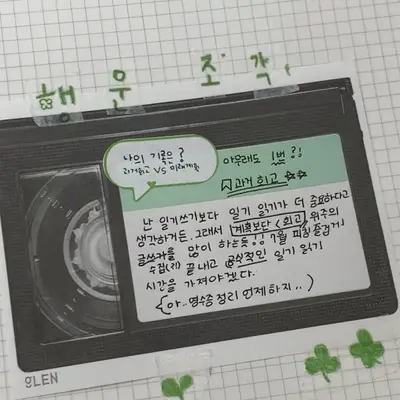 행운 조각
나의 기록은?
과거회고 VS 미래계획
아무래도 1번?!
과거 회고
난 일기쓰기보다 일기 읽기가 더 중요하다고
생각하거든. 그래서 계획보단 <회고> 위주의
글쓰기를 많이 하는듯!! 7월 피칭 즐겁게
수집(?) 끝내고 공식적인 일기 읽기
시간을 가져야겠다.
(아.. 영수증 정리 언제하지..)
OLEN